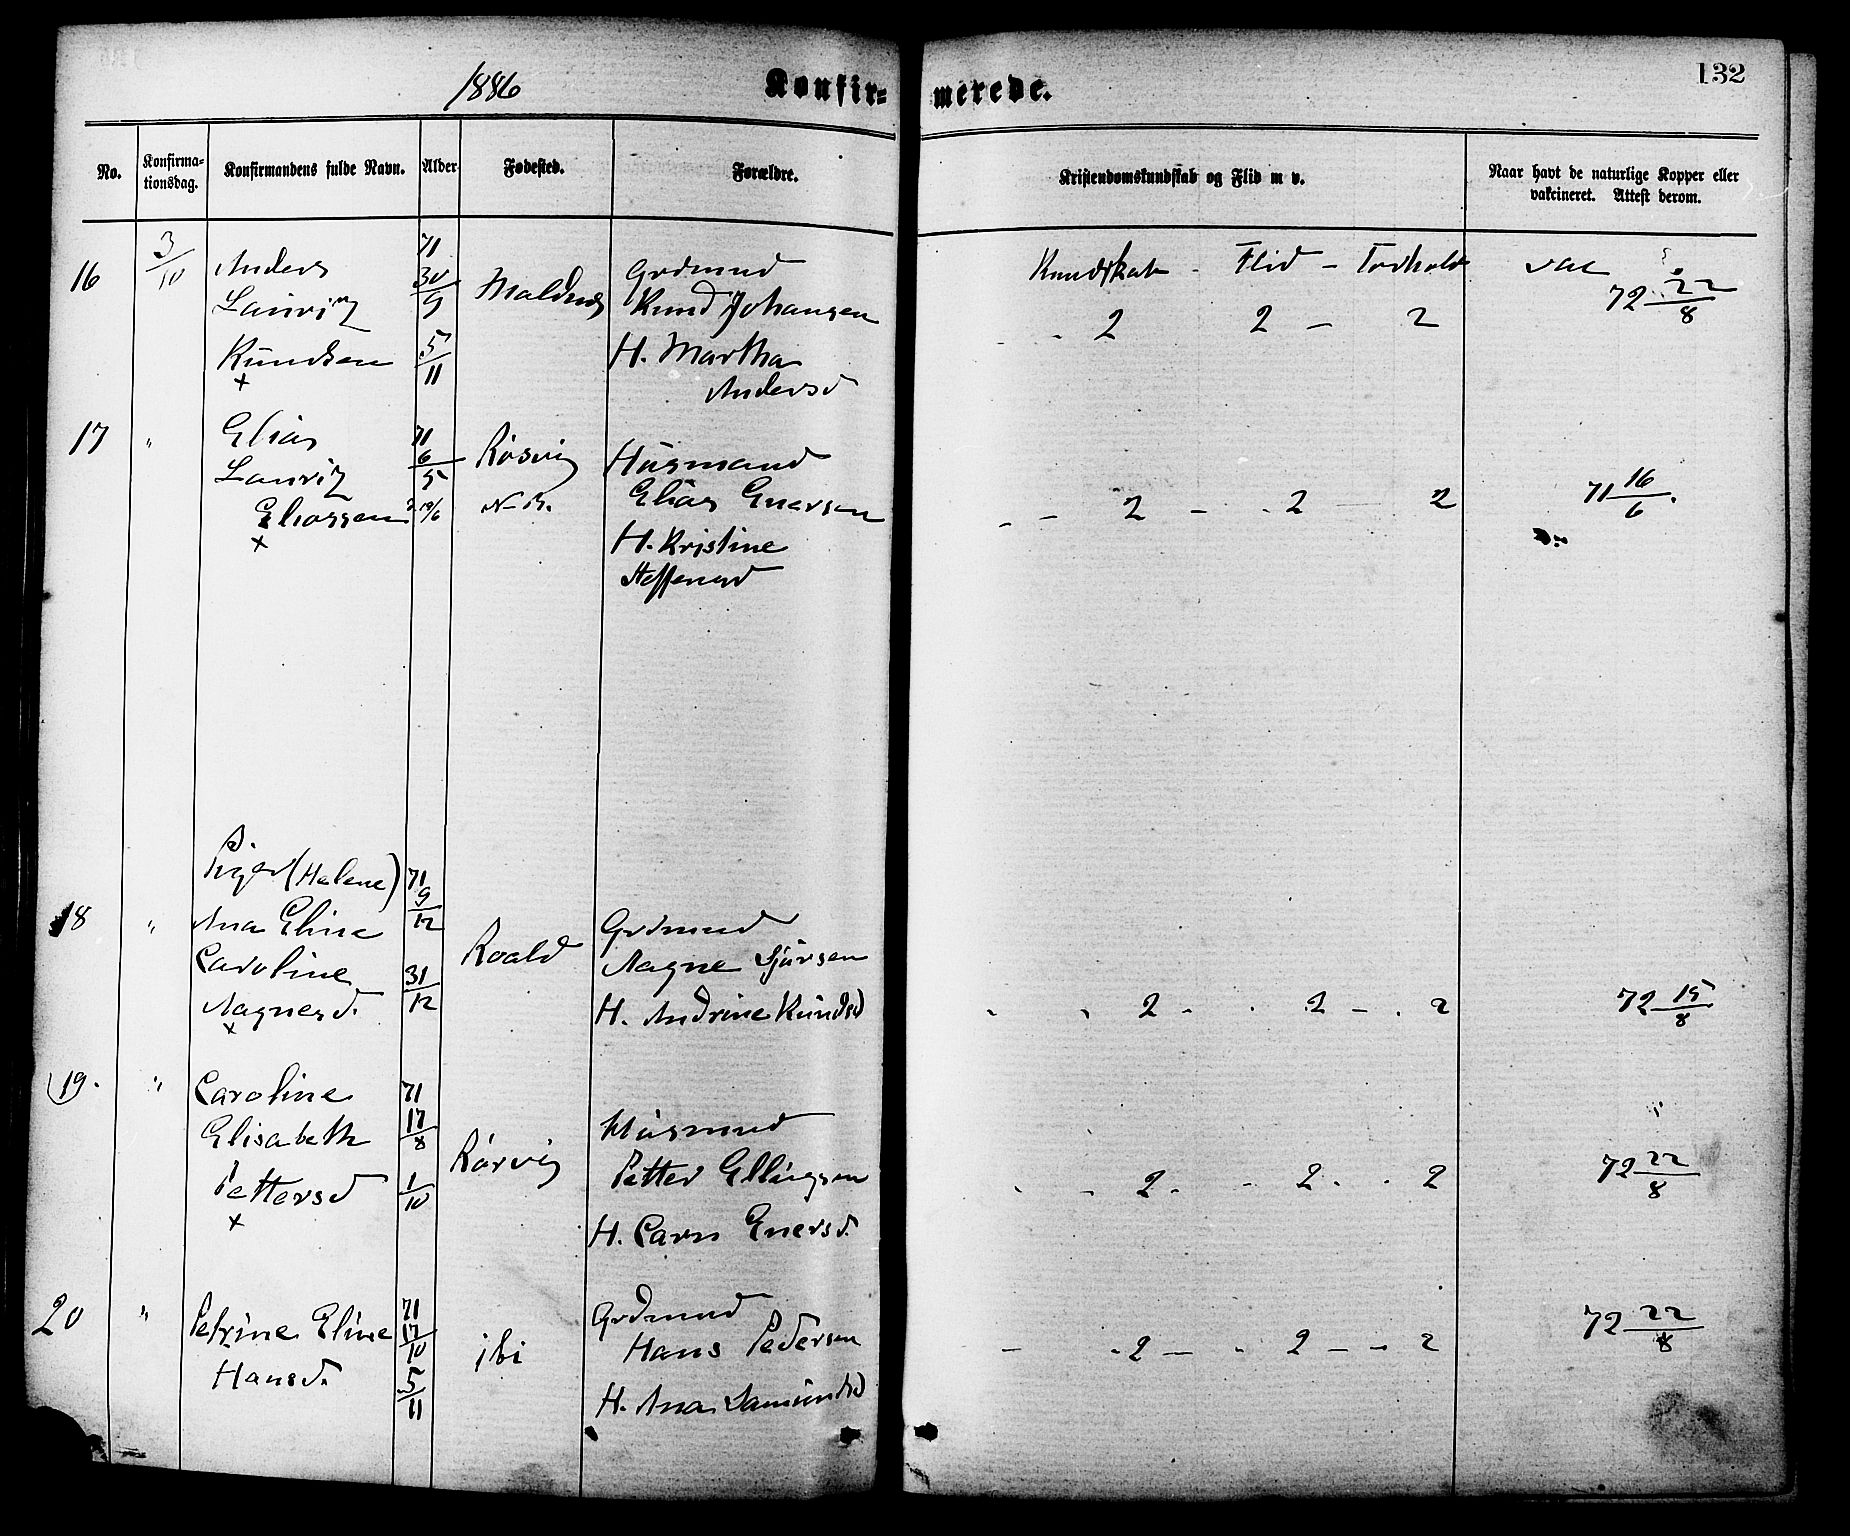 1886
Konfir=
merede.
132
No.
Konfirma-
tionsdag.
Konfirmandens fulde Navn.
Alder
Fødested.
Forældre.
Kristendomskundskab og Flid m v.
Naar havt de naturlige Kopper eller
vakcineret. Attest derom.
Kundskab - Flid - Forhold
vac
16
3/10
Anders
Lauritz
Knudsen
x
71
30/9
5/11
Maldnes
Grdmand
Knud Johansen
H. Martha
Andersd
2 2 - 2
72 22/8
17
"
Elias
Lauritz
Eliassen
x
71
6/5
19/6
Røsvig
N.B.
Husmand
Elias Enersen
H. Kristine
Steffensd
2 - 2 2
71 16/6
Piger (Helene)
18
"
Ana Eline
Caroline
Aagnesd.
x
71
9/12
31/12
Roald
Grdmand
Aagne Sjursen
H. Andrine Knudsd
2 - 2 - 2
72 15/8
19.
"
Caroline
Elisabeth
Pettersd
x
71
17/8
1/10
Rørvig
Husmand
Petter Ellingsen
H. Caren Enersd.
2 - 2 - 2
72 22/8
20
"
Petrine Eline
Hansd.
71
17/10
5/11
ibi
Grdmand
Hans Pedersen
H. Ana Samundsd
2 - 2 - 2
72 22/8